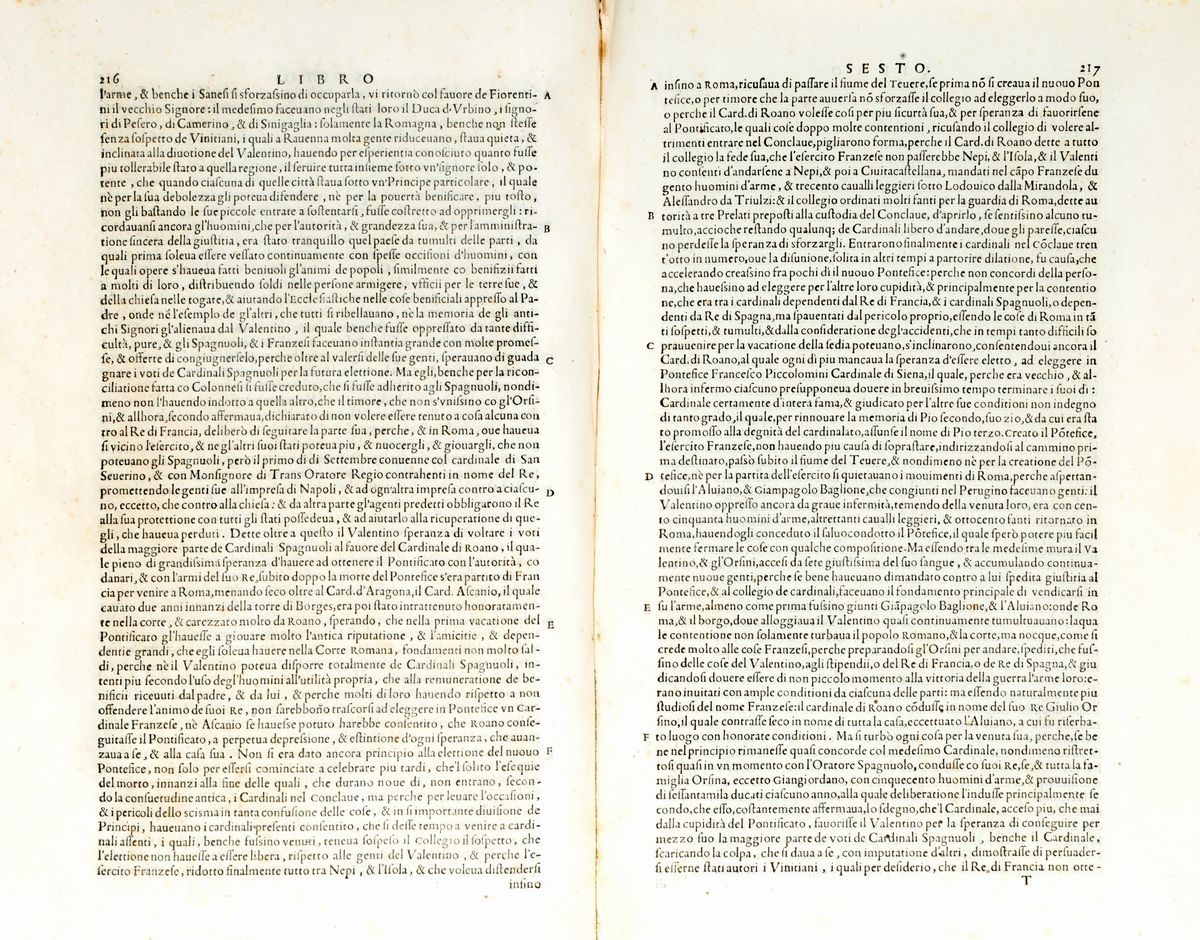 216 LIBRO
l'arme, & benche i Sanesi si sforzassino di occuparla, vi ritornò col fauore de Fiorenti- A
ni il vecchio Signore: il medesimo faceuano negli stati loro il Duca d'Vrbino, i signo-
ri di Pesero, di Camerino, & di Sinigaglia: solamente la Romagna, benche non stesse
senza sospetto de Vinitiani, i quali a Rauenna molta gente riduceuano, staua quieta, &
inclinata alla diuotione del Valentino, hauendo per esperientia conosciuto quanto fusse
piu tollerabile stato a quella regione, il seruire tutta insieme sotto vn'signore solo, & po-
tente, che quando ciascuna di quelle città staua sotto vn'Principe particolare, il quale
nè per la sua debolezza gli poteua difendere, nè per la pouertà benificare, piu tosto,
non gli bastando le sue piccole entrate a sostentarsi, fusse costretto ad opprimergli: ri-
cordauansi ancora gl'huomini, che per l'autorità, & grandezza sua, & per l'amministra- B
tione sincera della giustitia, era stato tranquillo quel paese da tumulti delle parti, da
quali prima soleua essere vessato continuamente con spesse occisioni d'huomini, con
le quali opere s'haueua fatti beniuoli gl'animi de popoli, similmente co benifizii fatti
a molti di loro, distribuendo soldi nelle persone armigere, vfficii per le terre sue, &
della chiesa nelle togate, & aiutando l'Ecclesiastiche nelle cose benificiali appresso al Pa-
dre, onde nè l'esemplo de gl'altri, che tutti si ribellauano, nè la memoria de gli anti-
chi Signori gl'alienaua dal Valentino, il quale benche fusse oppressato da tante diffi-
cultà, pure, & gli Spagnuoli, & i Franzesi faceuano instantia grande con molte promes-
se, & offerte di congiugnerselo, perche oltre al valersi delle sue genti, sperauano di guada C
gnare i voti de Cardinali Spagnuoli per la futura elettione. Ma egli, benche per la ricon-
ciliatione fatta co Colonnesi si fusse creduto, che si fusse adherito agli Spagnuoli, nondi-
meno non l'hauendo indotto a quella altro, che il timore, che non s'vnissino co gl'Orsi-
ni, & allhora, secondo affermaua, dichiarato di non volere essere tenuto a cosa alcuna con
tro al Re di Francia, deliberò di seguitare la parte sua, perche, & in Roma, oue haueua
si vicino l'esercito, & negl'altri suoi stati poteua piu, & nuocergli, & giouargli, che non
poteuano gli Spagnuoli, però il primo dì di Settembre conuenne col cardinale di San
Seuerino, & con Monsignore di Trans Oratore Regio contrahenti in nome del Re,
promettendo le genti sue all'impresa di Napoli, & ad ogn'altra impresa contro a ciascu- D
no, eccetto, che contro alla chiesa: & da altra parte gl'agenti predetti obbligarono il Re
alla sua protettione con tutti gli stati possedeua, & ad aiutarlo alla ricuperatione di que-
gli, che haueua perduti. Dette oltre a questo il Valentino speranza di voltare i voti
della maggiore parte de Cardinali Spagnuoli al fauore del Cardinale di Roano, il qua-
le pieno di grandissima speranza d'hauere ad ottenere il Pontificato con l'autorità, co
danari, & con l'armi del suo Re, subito doppo la morte del Pontefice s'era partito di Fran
cia per venire a Roma, menando seco oltre al Card. d'Aragona, il Card. Ascanio, il quale
cauato due anni innanzi della torre di Borges, era poi stato intrattenuto honoratamen-
te nella corte, & carezzato molto da Roano, sperando, che nella prima vacatione del E
Pontificato gl'hauesse a giouare molto l'antica riputatione, & l'amicitie, & depen-
dentie grandi, che egli soleua hauere nella Corte Romana, fondamenti non molto sal-
di, perche nè il Valentino poteua disporre totalmente de Cardinali Spagnuoli, in-
tenti piu secondo l'uso degl'huomini all'utilità propria, che alla remuneratione de be-
nificii riceuuti dal padre, & da lui, & perche molti di loro hauendo rispetto a non
offendere l'animo de suoi Re, non sarebbono trascorsi ad eleggere in Pontefice vn Car-
dinale Franzese, nè Ascanio se hauesse potuto harebbe consentito, che Roano conse-
guitasse il Pontificato, a perpetua depressione, & estintione d'ogni speranza, che auan-
zaua a se, & alla casa sua. Non si era dato ancora principio alla elettione del nuouo F
Pontefice, non solo per essersi cominciate a celebrare piu tardi, che'l solito l'esequie
del morto, innanzi alla fine delle quali, che durano noue di, non entrano, secon-
do la consuetudine antica, i Cardinali nel Conclaue, ma perche per leuare l'occasioni,
& i pericoli dello scisma in tanta confusione delle cose, & in sì importante diuisione de
Principi, haueuano i cardinali presenti consentito, che si desse tempo a venire a cardi-
nali assenti, i quali, benche fussino venuti, teneua sospeso il Collegio il sospetto, che
l'elettione non hauesse a essere libera, rispetto alle genti del Valentino, & perche l'e-
sercito Franzese, ridotto finalmente tutto tra Nepi, & l'Isola, & che voleua distendersi
insino
SESTO. 217
A insino a Roma, ricusaua di passare il fiume del Teuere, se prima nō si creaua il nuouo Pon
tefice, o per timore che la parte auuersa nō sforzasse il collegio ad eleggerlo a modo suo,
o perche il Card. di Roano volesse così per piu sicurtà sua, & per speranza di fauorirsene
al Pontificato, le quali cose doppo molte contentioni, ricusando il collegio di volere al-
trimenti entrare nel Conclaue, pigliarono forma, perche il Card. di Roano dette a tutto
il collegio la fede sua, che l'esercito Franzese non passerebbe Nepi, & l'Isola, & il Valenti
no consentì d'andarsene a Nepi, & poi a Ciuitacastellana, mandati nel cāpo Franzese du
gento huomini d'arme, & trecento caualli leggieri sotto Lodouico dalla Mirandola, &
Alessandro da Triulzi: & il collegio ordinati molti fanti per la guardia di Roma, dette au
B torità a tre Prelati preposti alla custodia del Conclaue, d'aprirlo, se sentissino alcuno tu-
multo, accioche restando qualunq; de Cardinali libero d'andare, doue gli paresse, ciascu
no perdesse la speranza di sforzargli. Entrarono finalmente i cardinali nel cōclaue tren
t'otto in numero, oue la disunione, solita in altri tempi a partorire dilatione, fu causa, che
accelerando creassino fra pochi dì il nuouo Pontefice: perche non concordi della perso-
na, che hauessino ad eleggere per l'altre loro cupidità, & principalmente per la contentio
ne, che era tra i cardinali dependenti dal Re di Francia, & i cardinali Spagnuoli, o depen-
denti da Re di Spagna, ma spauentati dal pericolo proprio, essendo le cose di Roma in tā
ti sospetti, & tumulti, & dalla consideratione degl'accidenti, che in tempi tanti difficili so
C prauuenire per la vacatione della sedia poteuano, s'inclinarono, consentendoui ancora il
Card. di Roano, al quale ogni dì piu mancaua la speranza d'essere eletto, ad eleggere in
Pontefice Francesco Piccolomini Cardinale di Siena, il quale, perche era vecchio, & al-
lhora infermo ciascuno presupponeua douere in breuissimo tempo terminare i suoi dì:
Cardinale certamente d'intera fama, & giudicato per l'altre sue conditioni non indegno
di tanto grado, il quale, per rinnouare la memoria di Pio secondo, suo zio, & da cui era sta
to promosso alla degnità del cardinalato, assunse il nome di Pio terzo. Creato il Pōtefice,
l'esercito Franzese, non hauendo piu causa di soprastare, indirizzandosi al cammino pri-
ma destinato, passò subito il fiume del Teuere, & nondimeno nè per la creatione del Pō-
D tefice, nè per la partita dell'esercito si quietauano i mouimenti di Roma, perche aspettan-
douisi l'Aluiano, & Giampagolo Baglione, che congiunti nel Perugino faceuano genti: il
Valentino oppresso ancora da graue infermità, temendo della venuta loro, era con cen-
to cinquanta huomini d'arme, altrettanti caualli leggieri, & ottocento fanti ritornato in
Roma, hauendogli conceduto il saluocondotto il Pōtefice, il quale sperò potere piu facil
mente fermare le cose con qualche compositione. Ma essendo tra le medesime mura il Va
lentino, & gl'Orsini, accesi da sete giustissima del suo sangue, & accumulando continua-
mente nuoue genti, perche se bene haueuano dimandato contro a lui spedita giustitia al
Pontefice, & al collegio de cardinali, faceuano il fondamento principale di vendicarsi in
E su l'arme, almeno come prima fussino giunti Giāpagolo Baglione, & l'Aluiano: onde Ro
ma, & il borgo, doue alloggiaua il Valentino quasi continuamente tumultuauano: laqua
le contentione non solamente turbaua il popolo Romano, & la corte, ma nocque, come si
crede molto alle cose Franzesi, perche preparandosi gl'Orsini per andare, spediti, che fus-
sino delle cose del Valentino, agli stipendii, o del Re di Francia, o de Re di Spagna, & giu
dicandosi douere essere di non piccolo momento alla vittoria della guerra l'arme loro: e-
rano inuitati con ample conditioni da ciascuna delle parti: ma essendo naturalmente piu
studiosi del nome Franzese: il cardinale di Roano cōdusse in nome del suo Re Giulio Or
sino, il quale contrasse seco in nome di tutta la casa, eccettuato l'Aluiano, a cui fu riserba-
F to luogo con honorate conditioni. Ma si turbò ogni cosa per la venuta sua, perche, se be
ne nel principio rimanesse quasi concorde col medesimo Cardinale, nondimeno ristret-
tosi quasi in vn momento con l'Oratore Spagnuolo, condusse co suoi Re, se, & tutta la fa-
miglia Orsina, eccetto Giangiordano, con cinquecento huomini d'arme, & prouuisione
di sessantamila ducati ciascuno anno, alla quale deliberatione l'indusse principalmente se
condo, che esso, costantemente affermaua, lo sdegno, che'l Cardinale, acceso piu, che mai
dalla cupidità del Pontificato, fauorisse il Valentino per la speranza di conseguire per
mezzo suo la maggiore parte de voti de Cardinali Spagnuoli, benche il Cardinale,
scaricando la colpa, che si daua a se, con imputatione d'altri, dimostrasse di persuader-
si esserne stati autori i Vinitiani, i quali per desiderio, che il Re di Francia non otte-
T